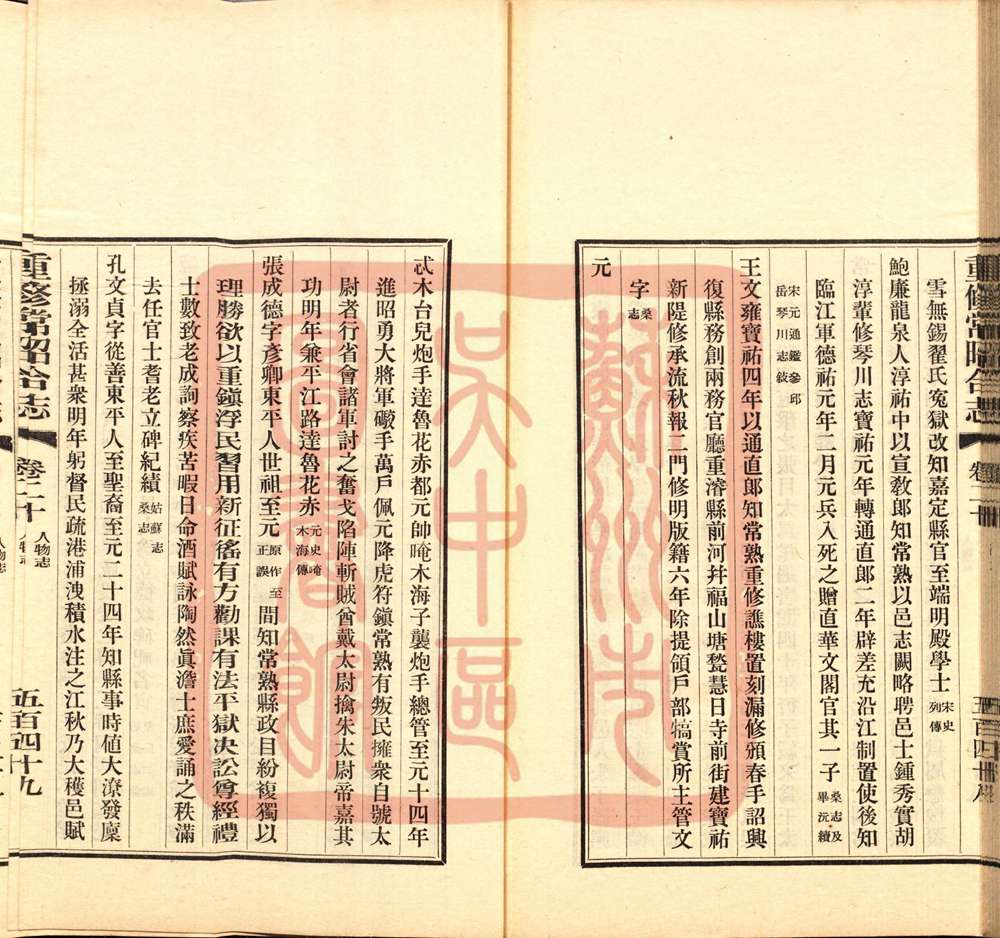 重修常昭合志 卷二十 五百四十八
雪無錫翟氏寃獄改知嘉定縣官至端明殿學士宋史列傳
鮑廉龍泉人淳祐中以宣教郎知常熟以邑志闕略聘邑士鍾秀實胡
淳輩修琴川志寶祐元年轉通直郎二年辟差充沿江制置使後知
臨江軍德祐元年二月元兵入死之贈直華文閣官其一子桑志及畢沅續
宋元通鑑參邱岳琴川志敍
王文雍寶祐四年以通直郎知常熟重修譙樓置刻漏修頒春手詔興
復縣務創兩務官廳重濬縣前河幷福山塘甃慧日寺前街建寶祐
新隄修承流秋報二門修明版籍六年除提領戶部犒賞所主管文
字桑志
元
忒木台兒炮手達魯花赤都元帥唵木海子襲炮手總管至元十四年
進昭勇大將軍礮手萬戶佩元降虎符鎭常熟有叛民擁衆自號太
尉者行省會諸軍討之奮戈陷陣斬賊酋戴太尉擒朱太尉帝嘉其
功明年兼平江路達魯花赤元史唵木海傳
張成德字彥卿東平人世祖至元原作至正誤間知常熟縣政目紛複獨以
理勝欲以重鎭浮民習用新征徭有方勸課有法平獄決訟尊經禮
士數致老成詢察疾苦暇日命酒賦詠陶然眞澹士庶愛誦之秩滿
去任官士耆老立碑紀績姑蘇志桑志
孔文貞字從善東平人至聖裔至元二十四年知縣事時値大潦發廩
拯溺全活甚衆明年躬督民疏港浦洩積水注之江秋乃大穫邑賦
重修常昭合志 卷二十 人物志 五百四十九